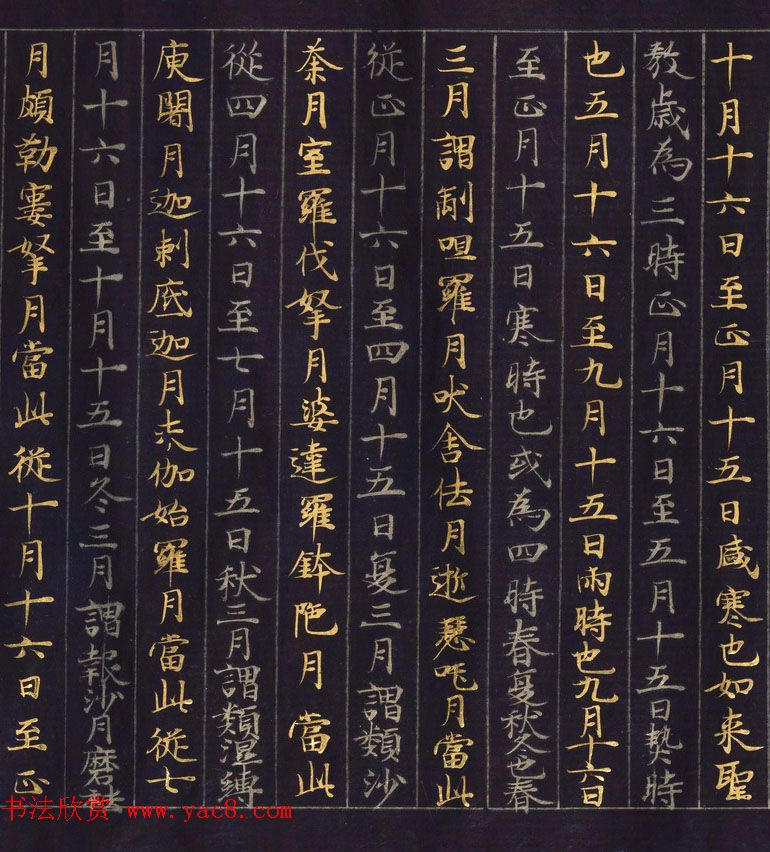 十月十六日至正月十五日盛寒也如来聖
教歳為三時正月十六日至五月十五日熱時
也五月十六日至九月十五日雨時也九月十六日
至正月十五日寒時也或為四時春夏秋冬也春
三月謂制呾羅月吠舎佉月逝瑟吒月當此
從正月十六日至四月十五日夏三月謂頞沙
荼月室羅伐拏月婆達羅鉢陁月當此
從四月十六日至七月十五日秋三月謂頞濕縛
庾闍月迦剌底迦月末伽始羅月當此從七
月十六日至十月十五日冬三月謂報沙月磨祛
月頗勒窶拏月當此從十月十六日至正
书法欣赏 www.yac8.com